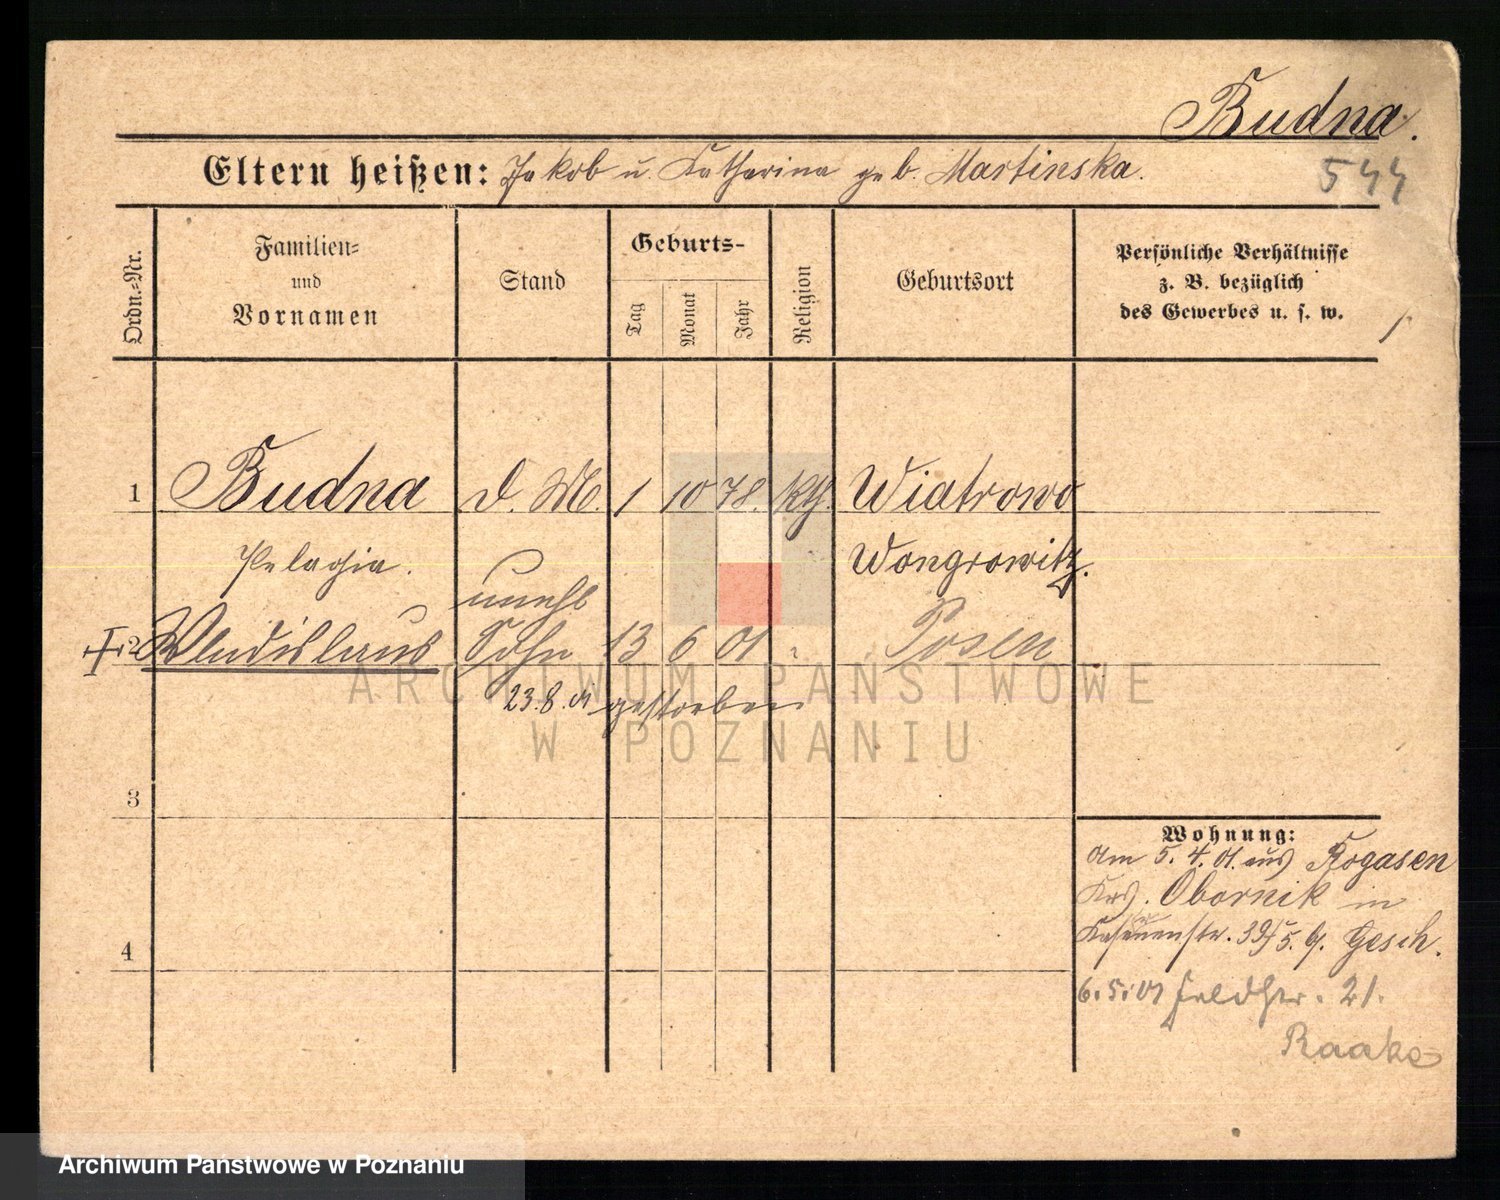 Budna.
Eltern heißen: Jakob u. Katharina geb. Martinska.
544
Ordn.-Nr.
Familien-
und
Vornamen
Stand
Geburts-
Tag
Monat
Jahr
Religion
Geburtsort
Persönliche Verhältnisse
z. B. bezüglich
des Gewerbes u. s. w.
1 Budna d. M. 1 10 78. kth. Wiatrowo
Pelagia. Wongrowitz.
unehl
2 Wladislaus Sohn 13 6 01 Posen
23.8.01 gestorben
ARCHIWUM PAŃSTWOWE
W POZNANIU
3
Wohnung:
am 5. 4. 01. aus Rogasen
Krs. Obornik in
39/5. b. Gesch.
4
6.5.01 Feldstr. 21.
Raake
Archiwum Państwowe w Poznaniu